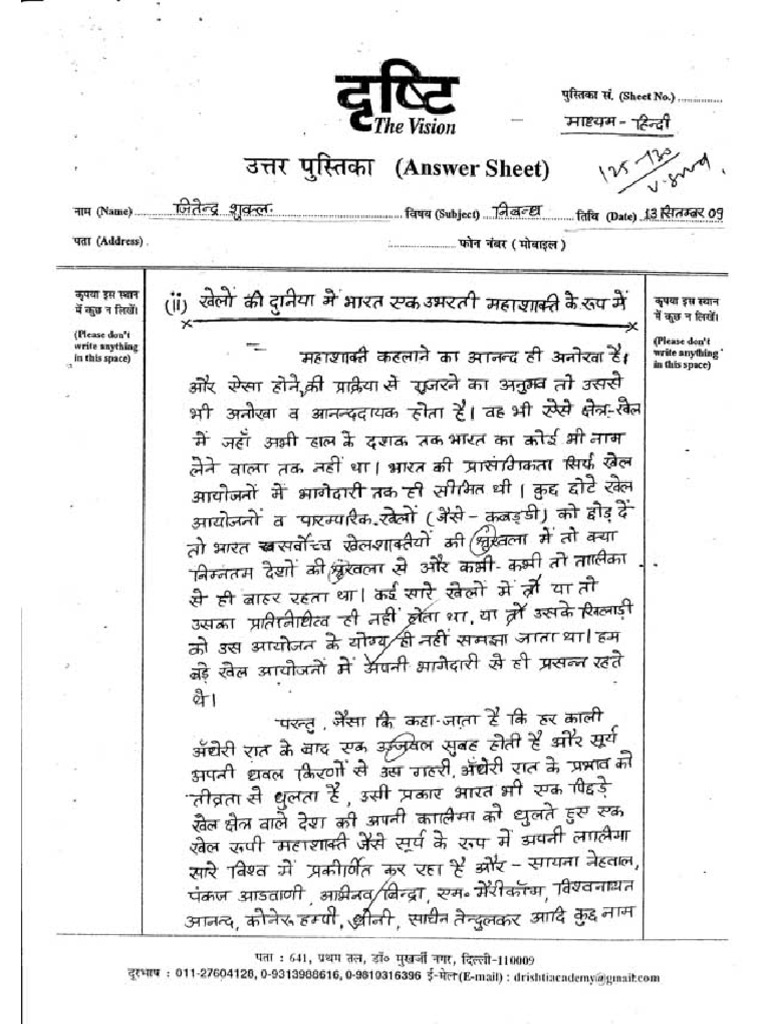 दृष्टि
The Vision
पुस्तिका सं. (Sheet No.)..............
माध्यम - हिन्दी
उत्तर पुस्तिका (Answer Sheet)
125-130
नाम (Name) जितेन्द्र शुक्ल. विषय (Subject) निबन्ध तिथि (Date) 13 सितम्बर 09
पता (Address) फोन नंबर ( मोबाइल )
कृपया इस स्थान
में कुछ न लिखें।
(Please don't
write anything
in this space)
(ii) खेलों की दुनिया में भारत एक उभरती महाशक्ति के रूप में
महाशक्ति कहलाने का आनन्द ही अनोखा है।
और ऐसा होने की प्रक्रिया से गुजरने का अनुभव तो उससे
भी अनोखा व आनन्ददायक होता है। वह भी ऐसे क्षेत्र-खेल
में जहाँ अभी हाल के दशक तक भारत का कोई भी नाम
लेने वाला तक नहीं था। भारत की प्रासंगिकता सिर्फ खेल
आयोजनों में भागेदारी तक ही सीमित थी। कुछ छोटे खेल
आयोजनों व पारम्परिक खेलों (जैसे - कबड्डी) को छोड़ दें
तो भारत सर्वोच्च खेलशक्तियों की श्रृंखला में तो क्या
निम्नतम देशों की श्रृंखला से और कभी-कभी तो तालिका
से ही बाहर रहता था। कई सारे खेलों में तो या तो
उसका प्रतिनिधित्व ही नहीं होता था, या तो उसके खिलाड़ी
को उस आयोजन के योग्य ही नहीं समझा जाता था। हम
बड़े खेल आयोजनों में अपनी भागेदारी से ही प्रसन्न रहते
थे।
परन्तु, जैसा कि कहा-जाता है कि हर काली
अँधेरी रात के बाद एक उज्जवल सुबह होती है और सूर्य
अपनी धवल किरणों से उस गहरी, अँधेरी रात के प्रभाव को
तीव्रता से धुलता है, उसी प्रकार भारत भी एक पिछड़े
खेल क्षेत्र वाले देश की अपनी कालिमा को धुलते हुए एक
खेल रूपी महाशक्ति जैसे सूर्य के रूप में अपनी लालिमा
सारे विश्व में प्रकीर्णित कर रहा है और - सायना नेहवाल,
पंकज आडवाणी, अभिनव बिन्द्रा, एम० मैरीकॉम, विश्वनाथन
आनन्द, कोनेरू हम्पी, धोनी, सचिन तेन्दुलकर आदि कुछ नाम
कृपया इस स्थान
में कुछ न लिखें।
(Please don't
write anything
in this space)
पता : 641, प्रथम तल, डॉ० मुखर्जी नगर, दिल्ली-110009
दूरभाष : 011-27604128, 0-9313988616, 0-9810316396 ई-मेल (E-mail) : drishtiacademy@gmail.com